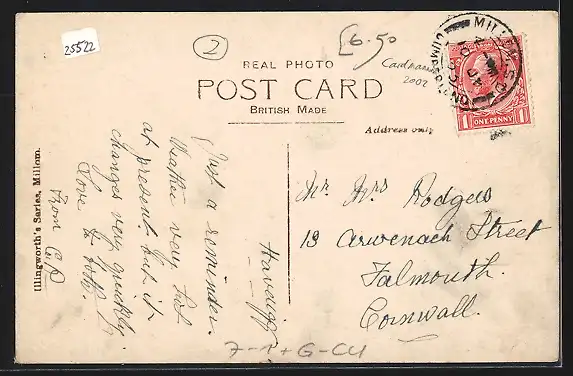 25522
2
£6.50
Cardname
2002
REAL PHOTO
POST CARD
BRITISH MADE
Address only
MILLOM
CUMBERLAND
ONE PENNY
1 1
Illingworth's Series, Millom.
Haverigg
Just a reminder.
Weather very hot
at present. but it
changes very quickly
Love to both.
From
Mr Mrs Rodgers
19 Arwenach Street
Falmouth.
Cornwall.